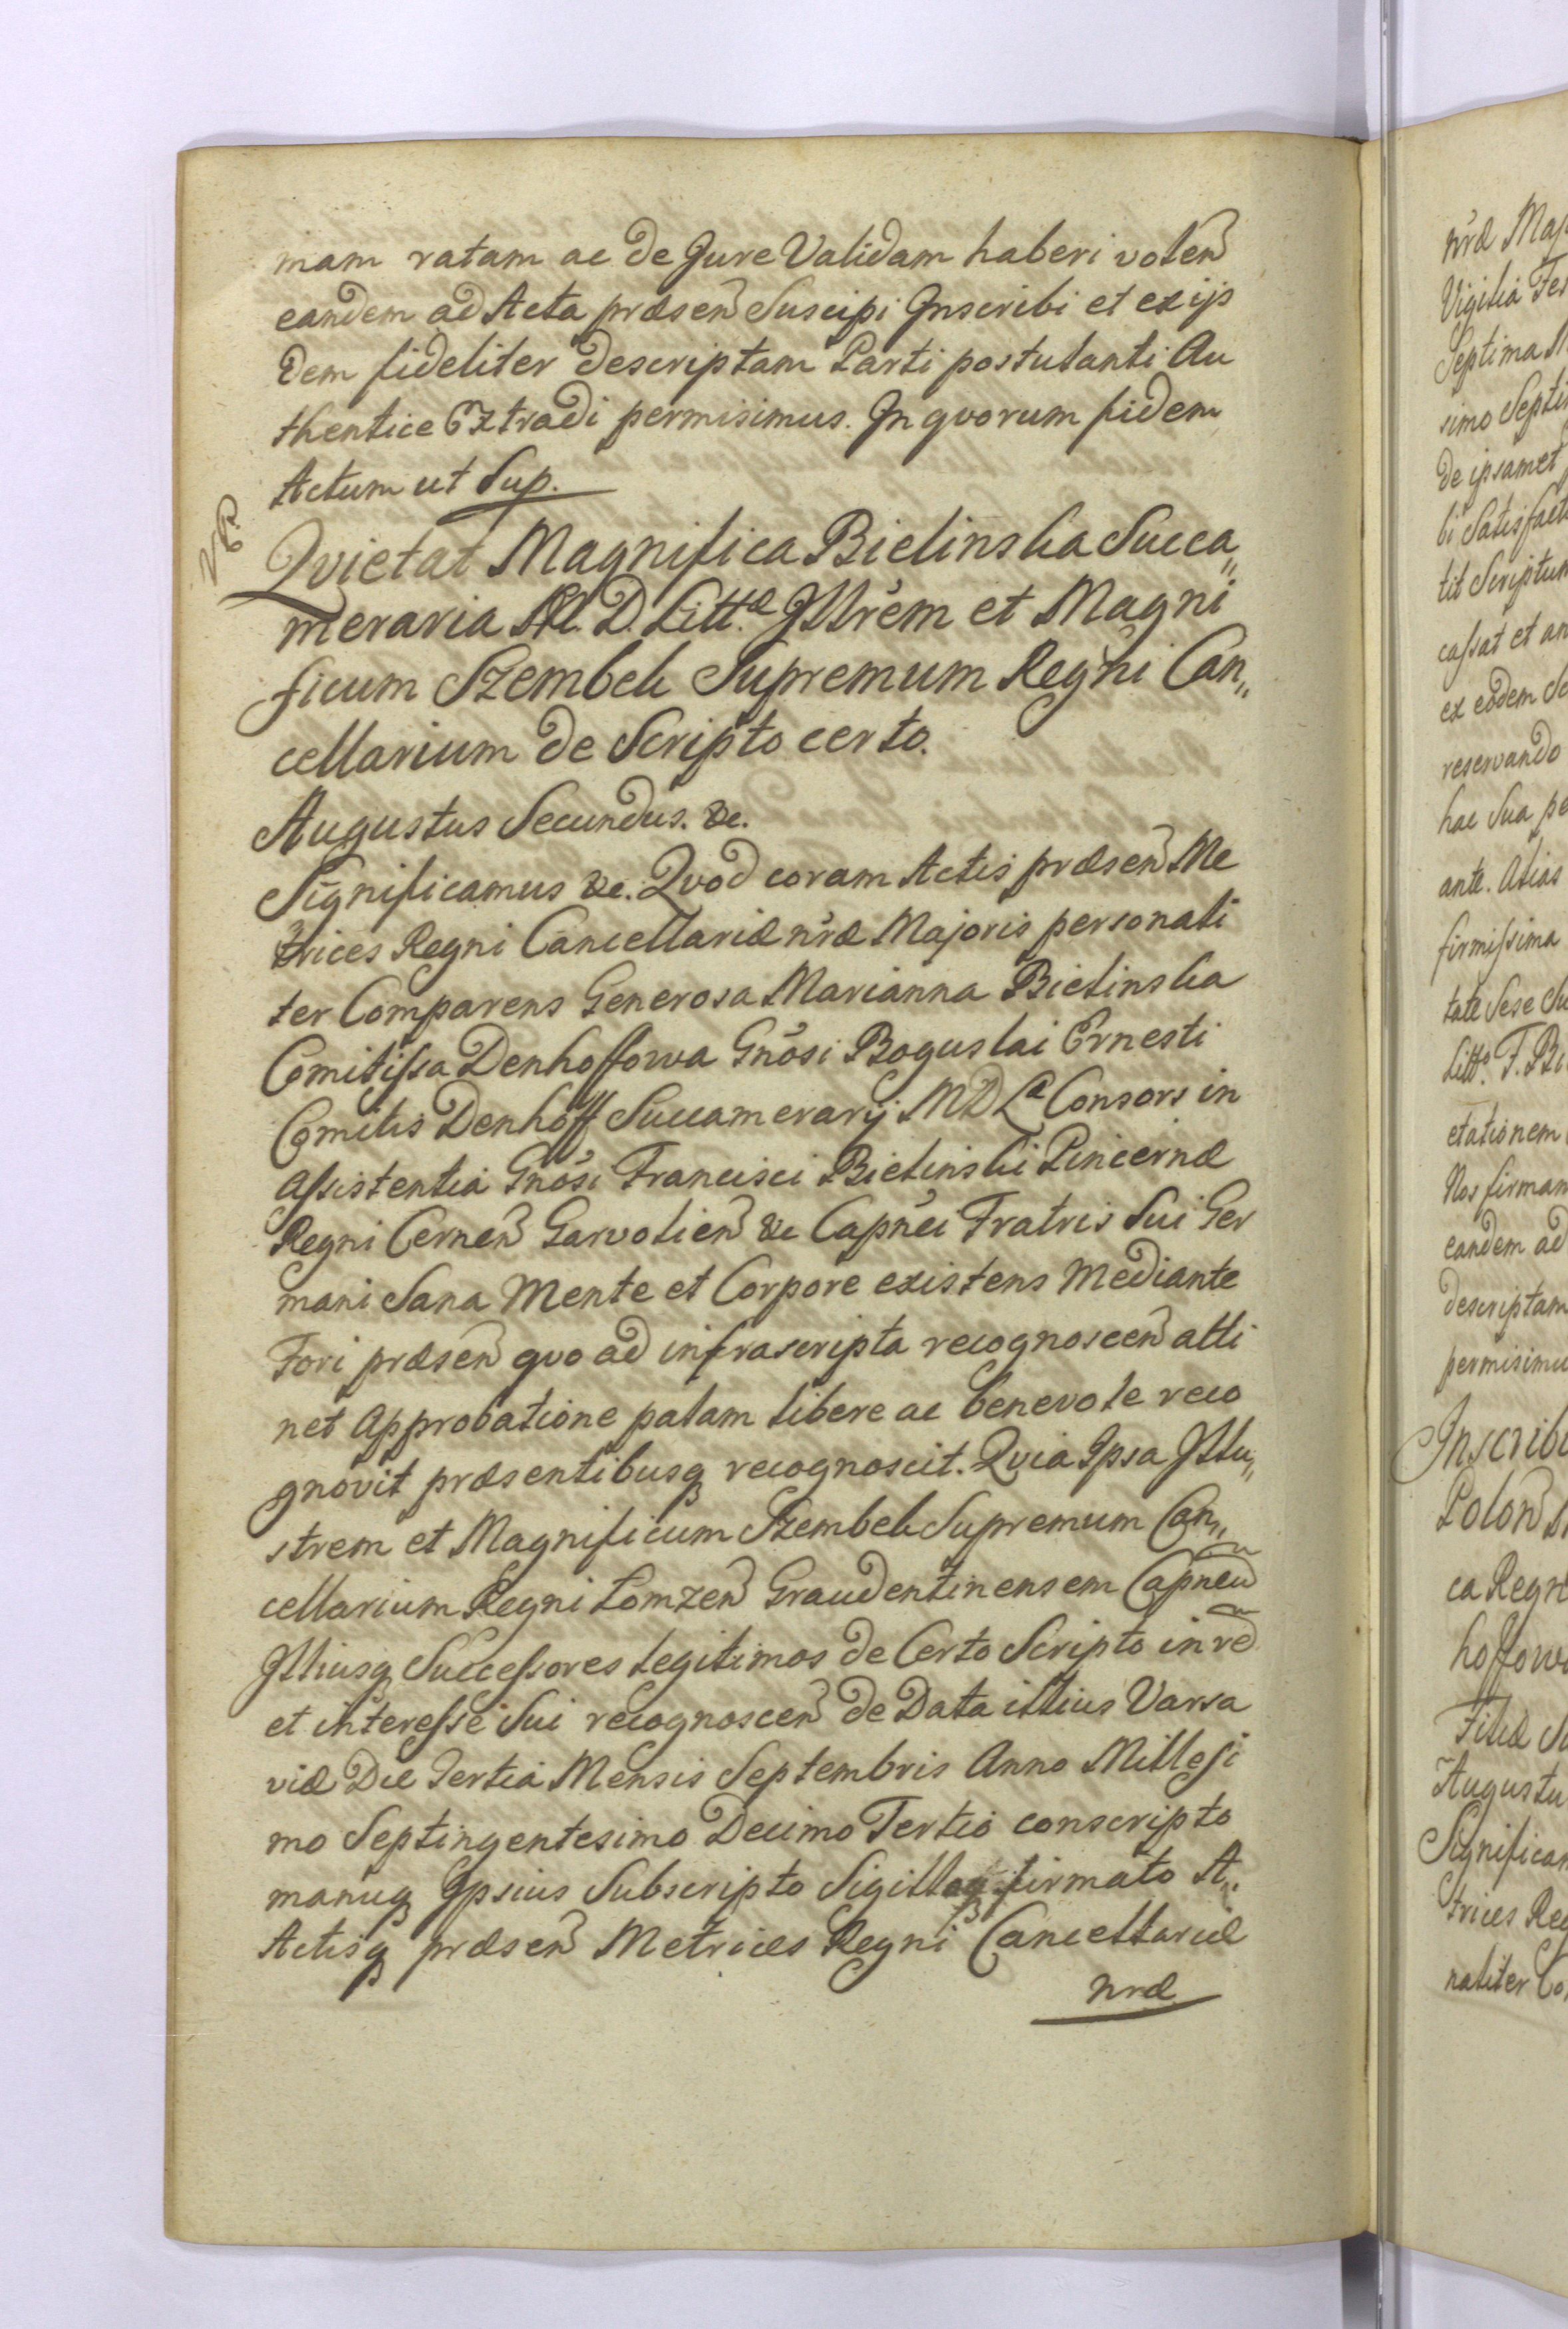 mam ratam ac de Jure Validam haberi volen
eandem ad Acta præsen Suscipi Inscribi et ex ijs
dem fideliter descriptam Parti postulanti Au
thentice Extradi permisimus. In qvorum fidem
Actum ut Sup.
Qvietat Magnifica Bielinska Succa„
meraria M. D. Litt.æ Illrem et Magni
ficum Szembek Supremum Regni Can„
cellarium de Scripto certo.
Augustus Secundus. &c.
Significamus &c. Qvod coram Actis præsen Me
trices Regni Cancellariæ nræ Majoris personali
ter Comparens Generosa Marianna Bielinska
Comitissa Denhoffowa Gnosi Boguslai Ernesti
Comitis Denhoff Succamerarij MDL Consors in
Assistentia Gnosi Francisci Bielinski Pincernæ
Regni Cernen Garvolien &c Capnei Fratris Sui Ger
mani Sana Mente et Corpore existens Mediante
Fori præsen qvo ad infrascripta recognoscen atti
net Approbatione palam libere ac benevole reco
gnovit præsentibusq recognoscit. Qvia Ipsa Illu„
strem et Magnificum Szembek Supremum Can„
cellarium Regni Lomzen Graudentinensem Capneu
Illiusq Successores legitimos de Certo Scripto in re
et interesse Sui recognoscen de Data illius Varsa
viæ Die Tertia Mensis Septembris Anno Millesi
mo Septingentesimo Decimo Tertio conscripto
manuq Ipsius Subscripto Sigilloq firmato A„
Actisq præsen Metrices Regni Cancellariæ
nræ
nræ Maj
Vigilia Fes
Septima
simo Septi
de ipsamet
bi Satisfact
tit Scriptum
cassat et an
ex eodem Sc
reservando
hac Sua pe
ante. Alias
firmissima
tate Sese Su
Litt. F. Bi
etationem
Nos firmam
eandem ad
descriptam
permisimu
Inscribi
Polon
ca Regn
hoffow
Filiæ Su
Augustu
Significam
trices Reg
naliter Co